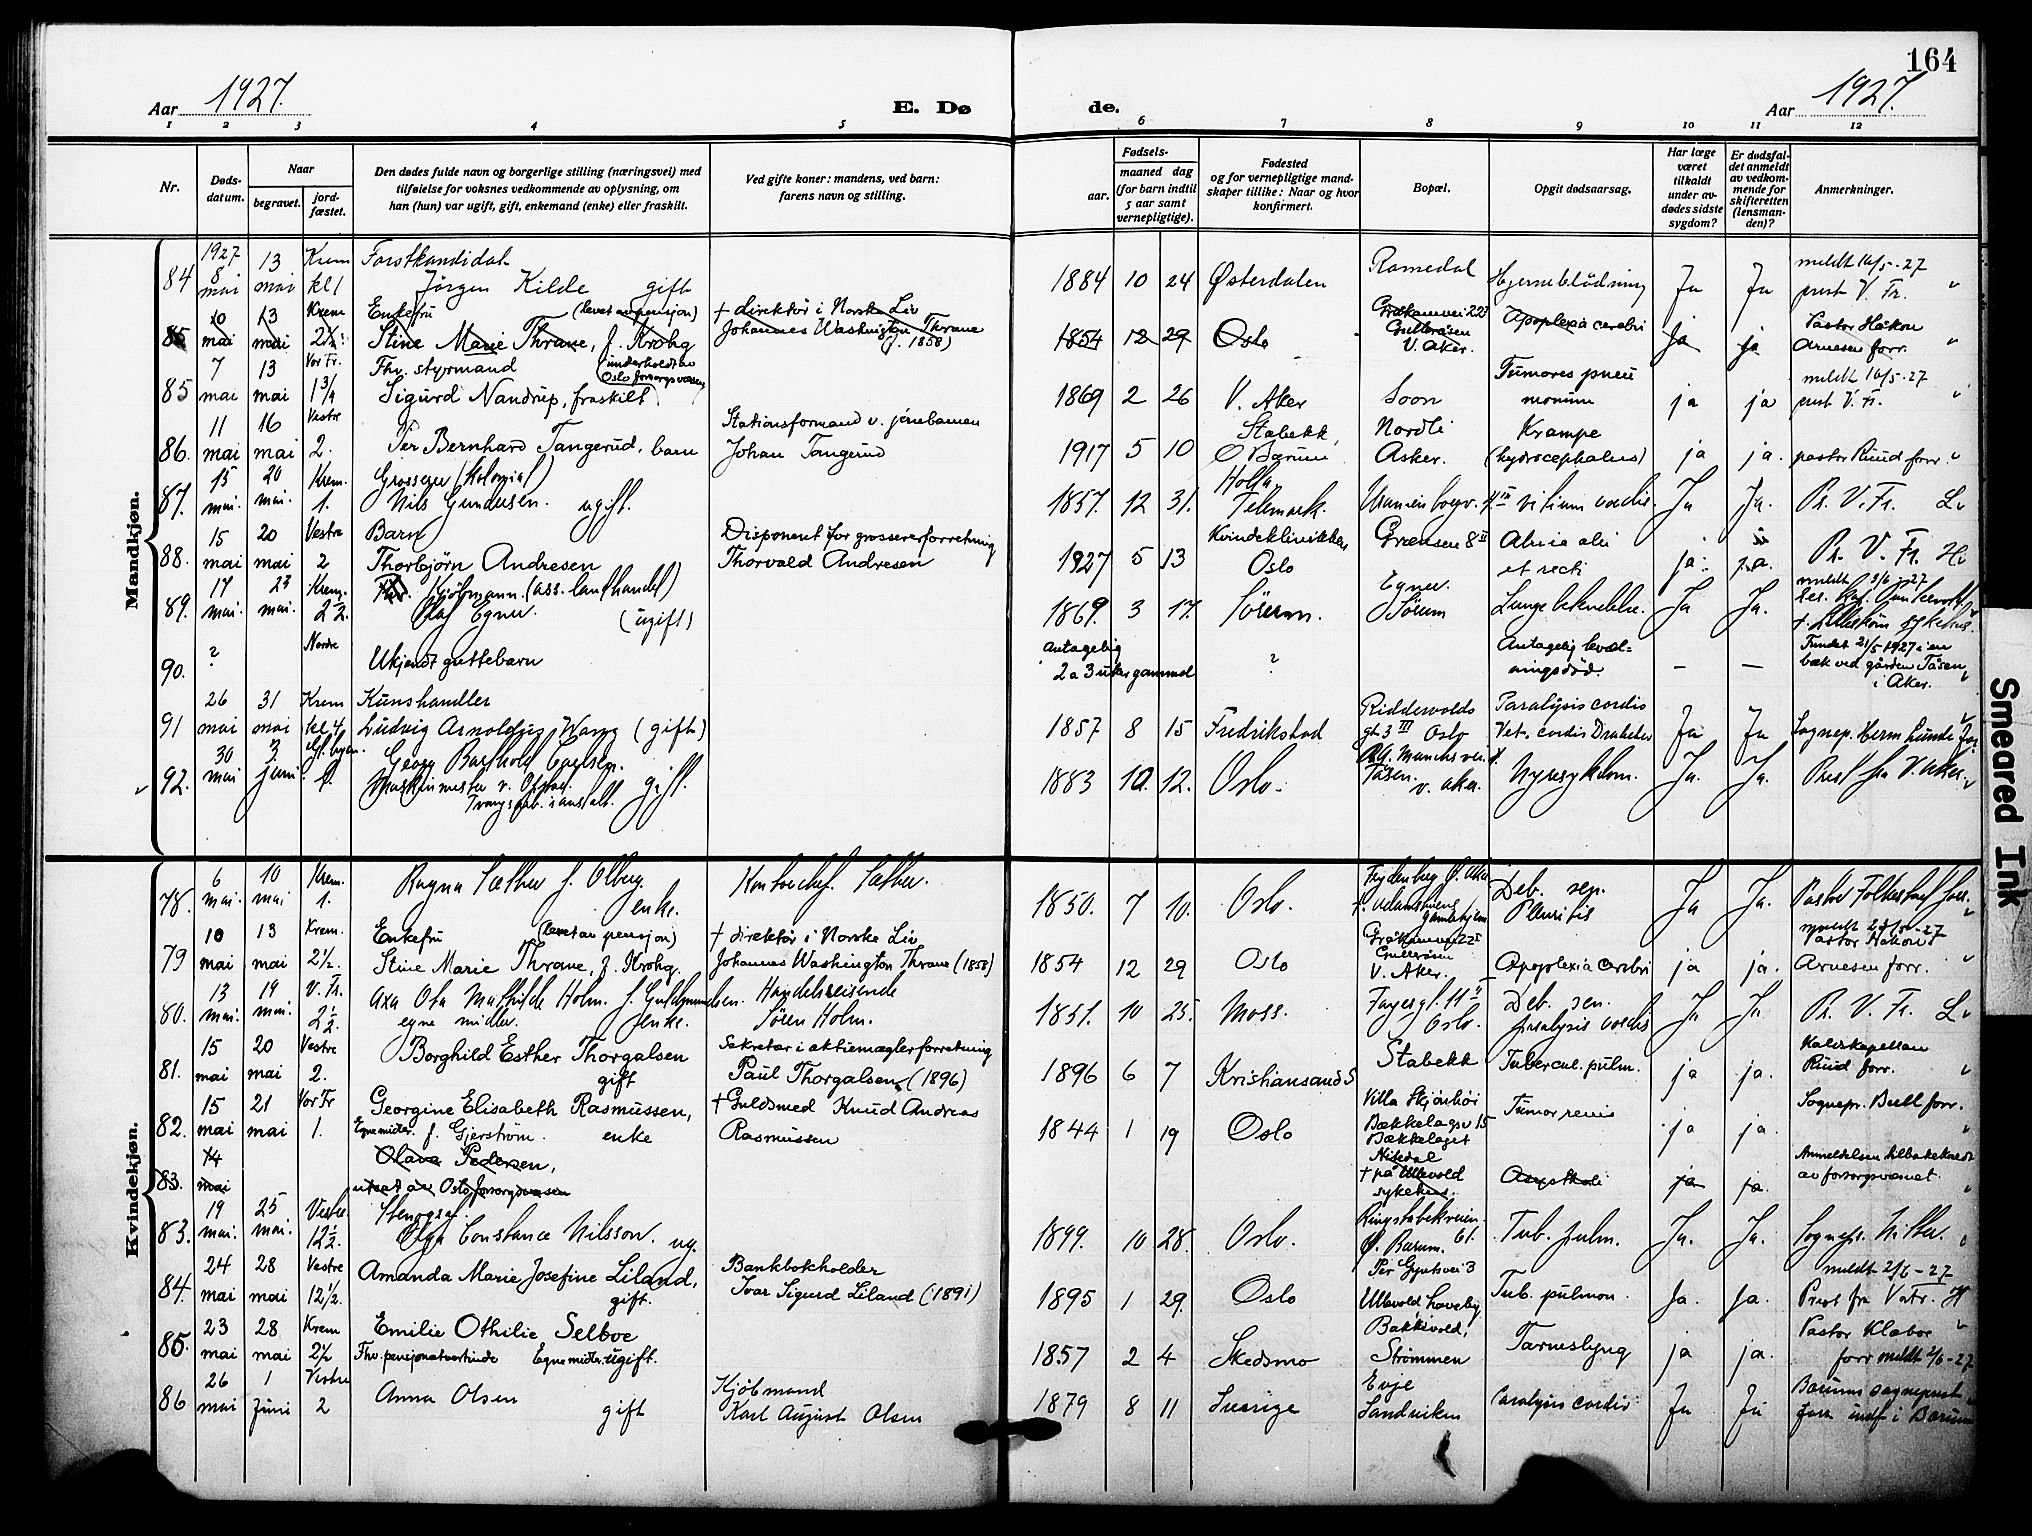 164
Aar 1927.
E. Dø
de.
Aar 1927.
1 2 3 4 5 6 7 8 9 10 11 12
Nr.
Døds-
datum.
Naar
begravet.
jord-
fæstet.
Den dødes fulde navn og borgerlige stilling (næringsvei) med
tilføielse for voksnes vedkommende av oplysning, om
han (hun) var ugift, gift, enkemand (enke) eller fraskilt.
Ved gifte koner: mandens, ved barn:
farens navn og stilling.
Fødsels-
aar.
maaned dag
(for barn indtil
5 aar samt
vernepligtige).
Fødested
og for vernepligtige mand-
skaper tillike: Naar og hvor
konfirmert.
Bopæl.
Opgit dødsaarsag.
Har læge
været
tilkaldt
under av-
dødes sidste
sygdom?
Er dødsfal-
det anmeldt
av vedkom-
mende for
skifteretten
(lensman-
den)?
Anmerkninger.
Mandkjøn.
1927 13 Krem Forstkandidat Romedal meldt 16/5-27
84 8 mai mai kl 1 Jörgen Kilde gift 1884 10 24 Østerdalen Hjerneblödning Ja Ja prest V. Fr.
10 13 Krem Enkefru (levet av pensjon) + direktör i Norske Liv Gråkamvei 22 Apoplexia cerebri Pastor Håkon
85 mai mai 2½ Stine Marie Thrane, f. Krohg Johannes Washington Thrane (f. 1858) 1854 12 29 Oslo Gulleråsen V. Aker. ja ja Arnesen forr.
7 13 Vor Fr. Fhv. styrmand (underholdt av Oslo forsorgsvesen) Tumores pneu meldt 16/5-27
85 mai mai 1¾ Sigurd Nandrup, fraskilt 1869 2 26 V. Aker Soon monum ja ja prest V. Fr.
11 16 Vestre Stationsformand v. jernbanen Stabekk, Nordli Krampe
86. mai mai 2. Per Bernhard Tangerud, barn Johan Tangerud 1917 5 10 Ø Bærum Asker. (hydrocephalus) ja ja. pastor Ruud forr.
15 20 Krem. Grosserer (kolonial) Holla,
87. mai. mai. 1. Nils Gundersen. ugift. 1857. 12 31. Telemark. vitium cordis. Ja Ja. Pr. V. Fr.
15 20 Vestre Barn Disponent for grossererforretning Kvindeklinikken Grensen 8 II
88. mai mai 2 Thorbjörn Andresen Thorvald Andresen 1927 5 13 Oslo et recti ja. ja. Pr. V. Fr.
17 23 Krem. Kjöbmann. (ass. landhandel) Egner. meldt 3/6-27
89. mai. mai. 2½. Olaf Egner. (ugift) 1869. 3 17. Sörum. Sörum Lungebetendelse. Ja Ja.
Nordre antagelig Antagelig kvæl- Fundet 21/5 1927 i en
90. ? Ukjendt guttebarn 2 a 3 uker gammel ? ningsdöd. — — bæk ved gården Tåsen
i Aker.
26 31 Krem Kunshandler Riddervolds Paralysis cordis
91 mai mai kl. 4 Ludvig Arnoldus Wang (gift) 1857 8 15 Fredrikstad gt 3 III Oslo Ja Ja Sognep. Herm Lunde
30 3 Georg Barthold
92. mai juni Maskinmester v. gift. 1883 10. 12. Oslo. Tåsen. V. Aker. Nyresykdom. Ja. Ja. Prest fra V. Aker.
Tvangsarb.sanstalt.
Kvindekjøn.
6 10 Krem. Ragna Sæther f. Olberg. Kontorchef. Sæther. Frydenberg Ø. Aker Deb. sen.
78. mai. mai 1. enke. 1850. 7 10. Oslo. gamlehjem Pleuritis Ja Ja. Pastor Folkestad forr.
10 13 Krem. Enkefru (levet av pensjon) + direktör i Norske Liv Gråkamvei 22 I Pastor Håkon
79 mai mai 2½. Stine Marie Thrane, f. Krohg. Johannes Washington Thrane (1858) 1854 12 29 Oslo Gulleråsen V. Aker. Apoplexia cerebri ja ja. Arnesen forr.
13 19 V. Fr. Axa Ota Mathilde Holm. f. Guldmundsen. Handelsreisende Fayesgt. 11 II Deb. sen.
80. mai. mai. 2½. egne midler. enke. Sören Holm. 1851. 10 25. Moss. Oslo. paralysis cordis Ja Ja Pr. V. Fr.
15 20 Vestre Borghild Esther Thorgalsen Sekretær i aktiemæglerforretning Stabekk Tubercul. pulm. Kaldskapellan
81. mai mai 2. gift Paul Thorgalsen (1896) 1896 6 7 Kristiansand S ja ja. Ruud forr.
15 21 Vor Fr Georgine Elisabeth Rasmussen, + Guldsmed Knud Andreas Villa Skjönhöi Tumor renis Sognepr. Bull forr.
82. mai mai 1. Egne midler. f. Gjerström. enke Rasmussen 1844 1 19 Oslo Bækkelagsv 15 Bækkelaget ja ja.
14 Olava Pedersen, Nitedal Anmeldelsen tilbakekaldt
83. mai utsat av Oslo forsorgsvæsen + på Ullevold sykehus. ja ja. av forsorgsvæsenet.
19 25 Vestre Stenograf. Ringstabekveien
83. mai. mai. 12½. Olga Constance Nilsson. ug. 1899. 10 28. Oslo. Ø. Bærum. 61. Tub. pulm. Ja. Ja. Sognepr.
24 28 Vestre Amanda Marie Josefine Liland, Bankbokholder Per Gyntsvei 3 meldt 2/6-27
84. mai mai 12½. gift. Ivar Sigurd Liland (1891) 1895 1 29. Oslo Ullevold haveby Tub. pulmon. Ja. Ja. Prest fra V
23 28 Krem Emilie Othilie Selboe Bakkevold, Tarmslyng Pastor Klaboe
85. mai mai 2½ Fhv. pensjonatvertinde Egne midler. ugift. 1857 2 4 Skedsmo Strömmen ja ja. forr meldt 2/6-27
26 1 Vestre Anna Olsen Kjöbmand Evje Paralysis cordis Bærums sogneprest
86 mai Juni 2 gift Karl August Olsen 1879 8 11 Sverige Sandviken Ja Ja forr indf i Bærum
Smeared Ink